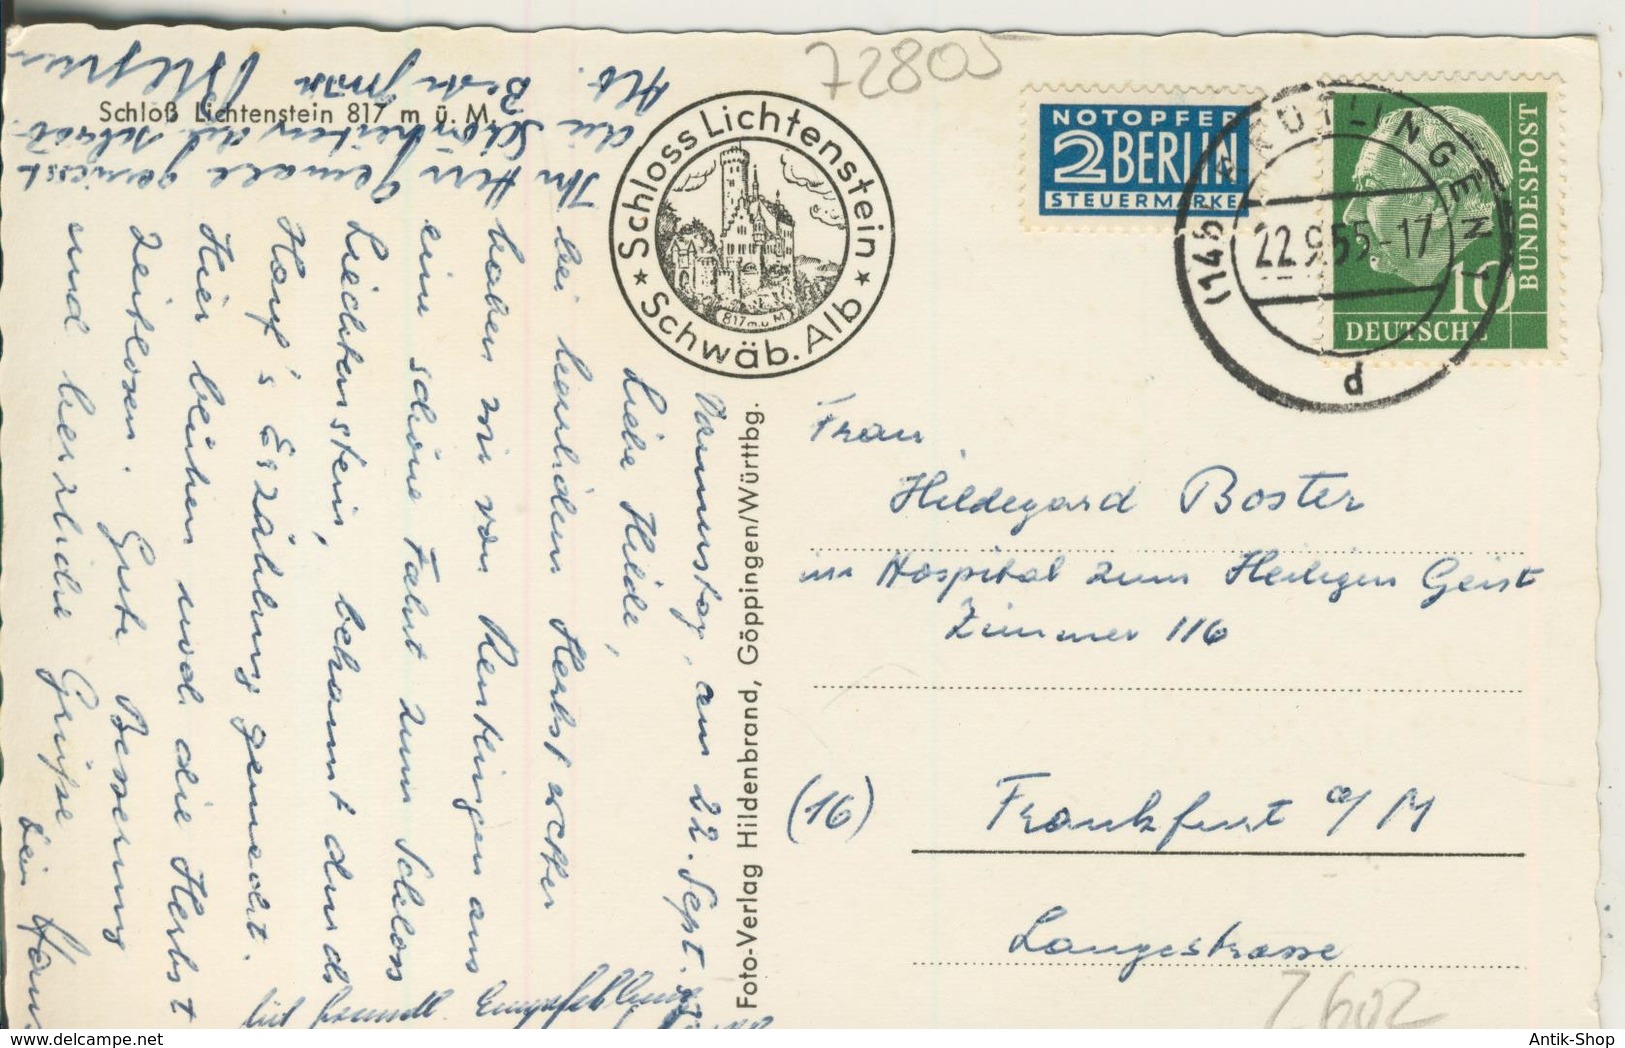 72805
Schloß Lichtenstein 817 m ü. M.
Schloss Lichtenstein
Schwäb. Alb
817 m.ü.M
NOTOPFER
2 BERLIN
STEUERMARKE
(14b) REUTLINGEN 1
22.9.55-17
P
BUNDESPOST
10
DEUTSCHE
Foto-Verlag Hildenbrand, Göppingen/Württbg.
Donnerstag, am 22. Sept.
Liebe Hilde,
bei herrlichem Herbstwetter
haben wir von Reutlingen aus
eine schöne Fahrt zum Schloss
Liechtenstein, bekannt durch
Hauf's Erzählung gemacht.
Hier blühen noch die Herbst
zeitlosen. Gute Besserung
und herzliche Grüsse
Dein Hans
Ihr Herr Gemahl geniesst
die Schönheiten der Schwäb.
Alb.
Mit freundl. Empfehlung
Frau
Hildegard Boster
im Hospital zum Heiligen Geist
Zimmer 116
(16) Frankfurt a/M
Langestrasse
Z602
Antik-Shop